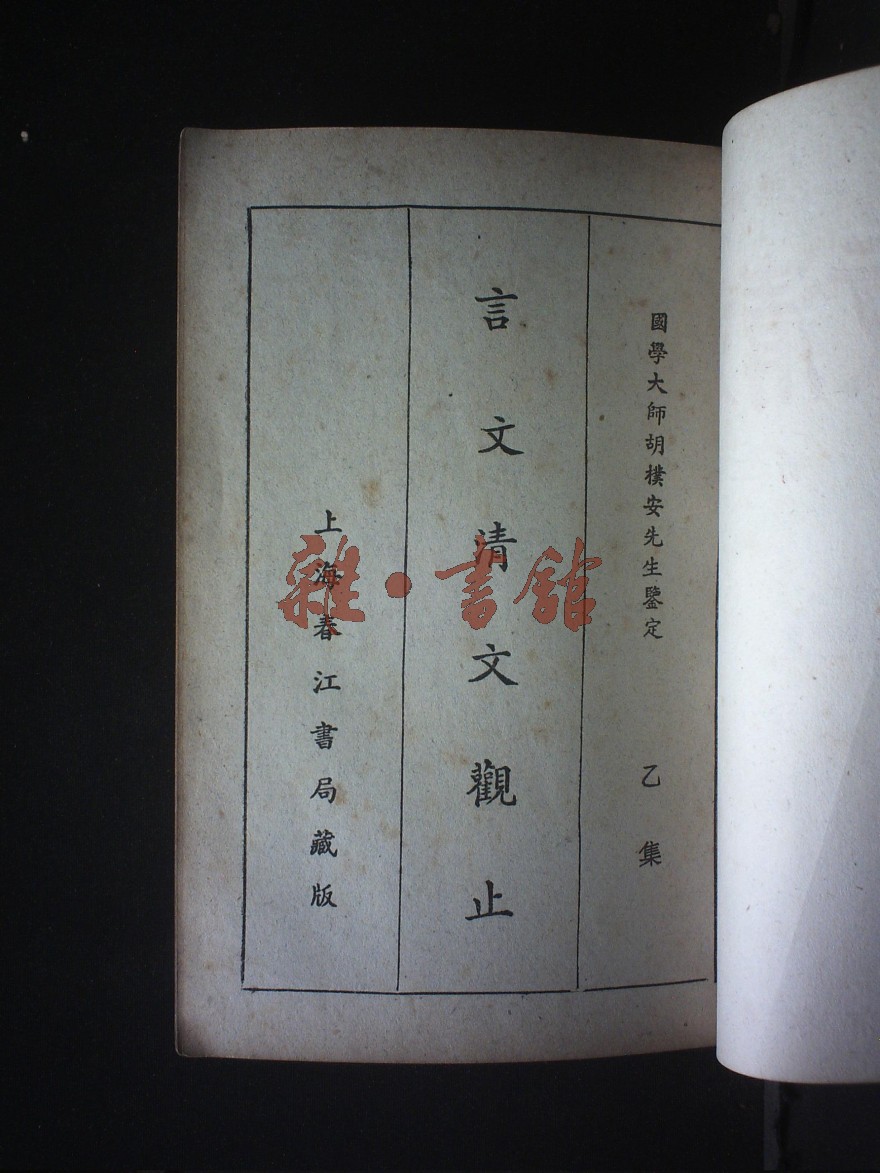 國學大師胡樸安先生鑒定 乙集
言文清文觀止
上海春江書局藏版
雜·書館